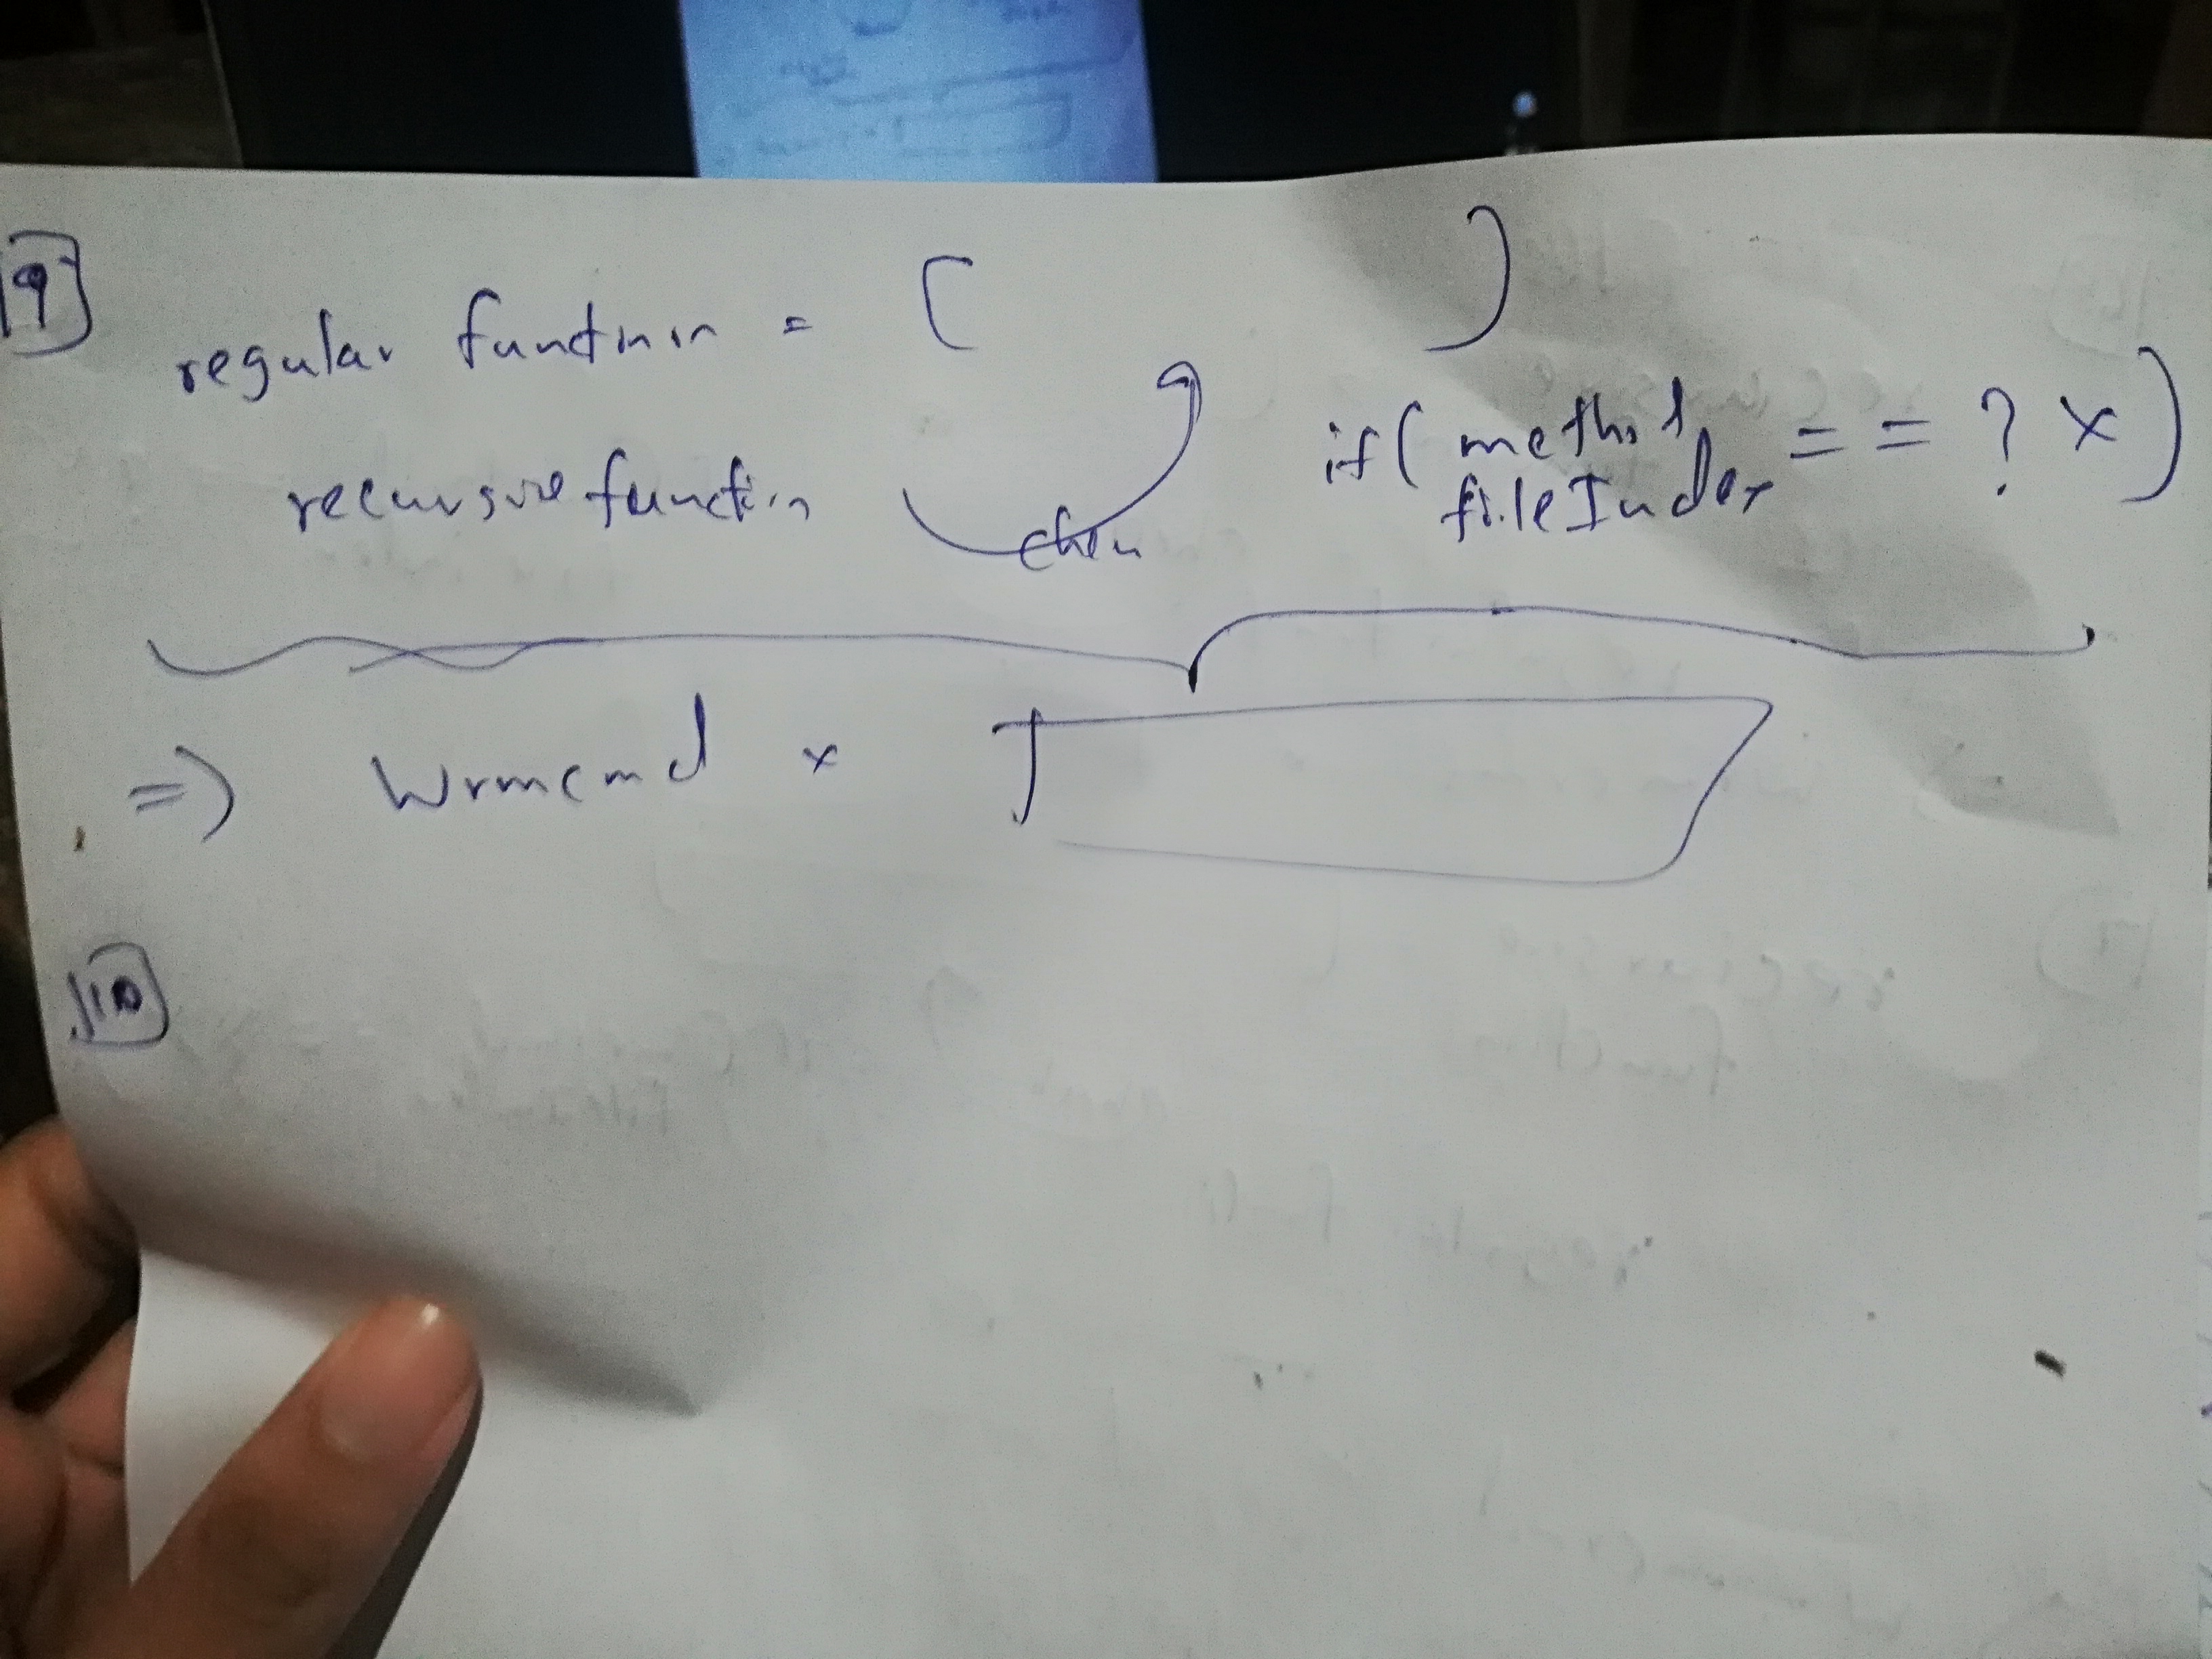 9
regular function = ( )
recursive function then if ( method fileIndex == ? x )
=> Wrmcmd x
10